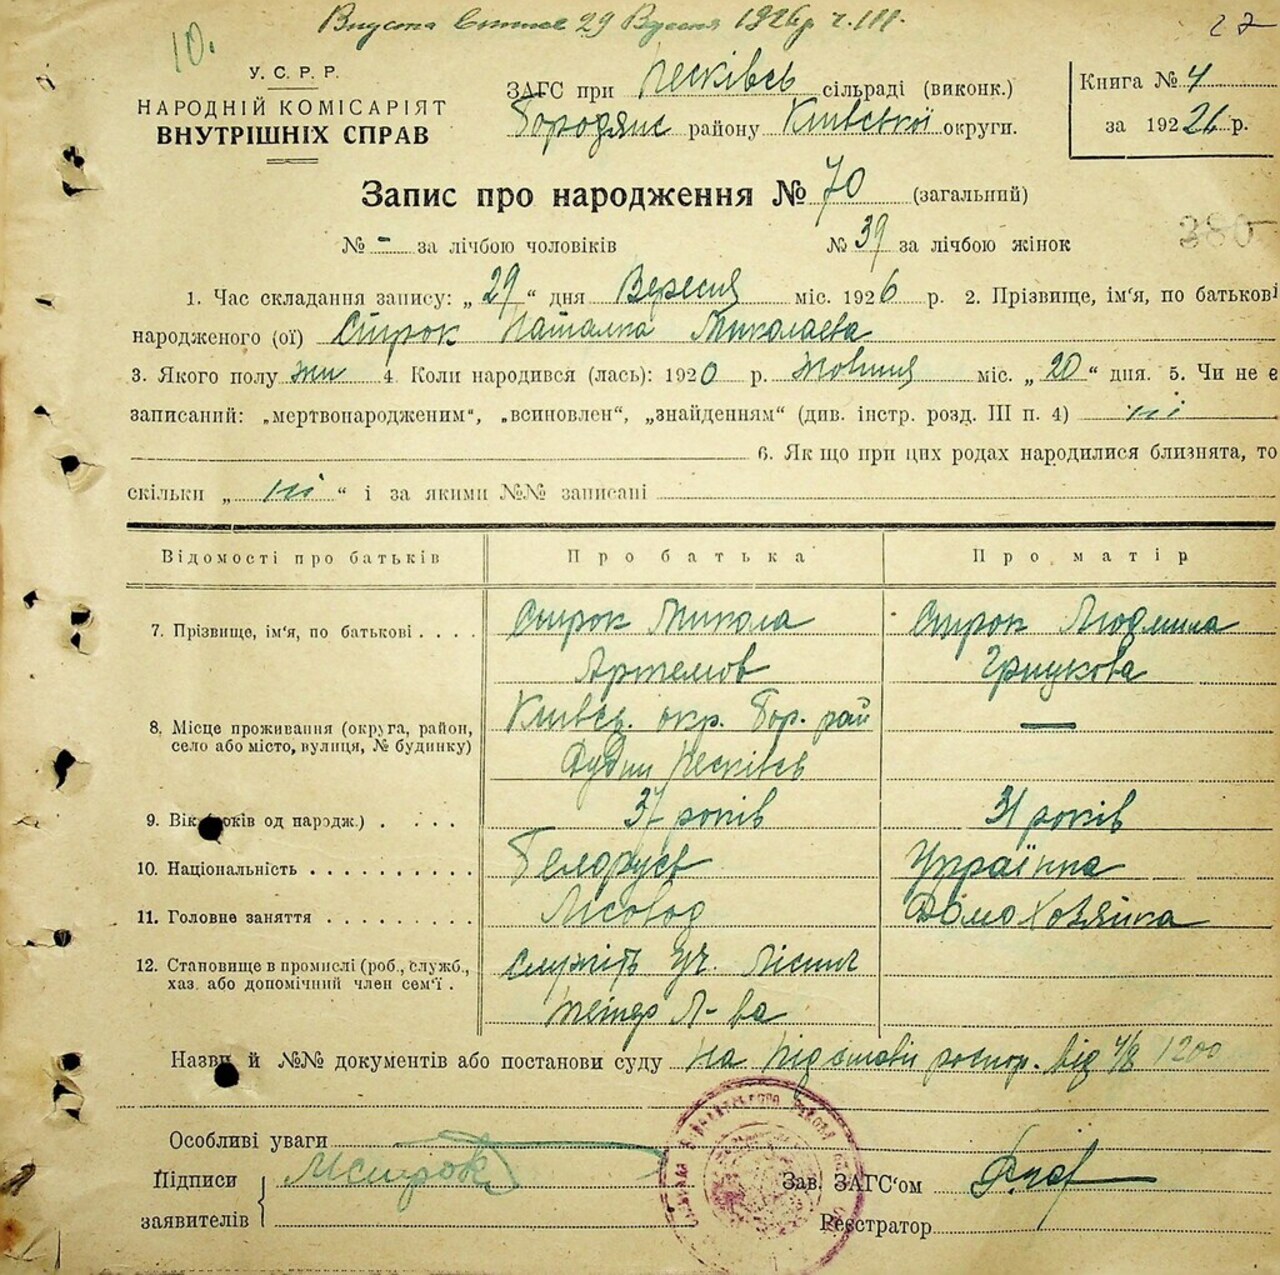 29 Вересня 1926 р. ч. 111.
10.
27
У. С. Р. Р.
НАРОДНІЙ КОМІСАРІЯТ
ВНУТРІШНІХ СПРАВ
ЗАГС при Песківсь сільраді (виконк.)
Бородянс району Київської округи.
Книга № 4
за 1926 р.
Запис про народження № 70 (загальний)
№ - за лічбою чоловіків № 39 за лічбою жінок
380
1. Час складання запису: „29“ дня Вересня міс. 1926 р. 2. Прізвище, ім'я, по батькові
народженого (ої) Строк Наталка Миколаєва
3. Якого полу жін 4. Коли народився (лась): 1920 р. Жовтня міс. „20“ дня. 5. Чи не є
записаний: „мертвонародженим“, „всиновлен“, „знайденням“ (див. інстр. розд. III п. 4) ні
6. Як що при цих родах народилися близнята, то
скільки „ні“ і за якими №№ записані
Відомості про батьків Про батька Про матір
7. Прізвище, ім'я, по батькові . . . . Строк Микола Строк Людмила
Артемов Грицкова
8. Місце проживання (округа, район, село або місто, вулиця, № будинку) Київсь. окр. Бор. рай —
Дудки Песківсь
9. Вік (років од народж.) . . . . 37 років 31 років
10. Національність . . . . . . . . . . Белорусь Українка
11. Головне заняття . . . . . . . . . Лісовод Домохозяйка
12. Становище в промислі (роб., служб., хаз. або допомічний член сем'ї . служить уч. Лісни
Л-ва
Назви й №№ документів або постанови суду на підставі роспор. від 4/8 1200
Особливі уваги
Підписи
заявителів
МСтрок
Зав. ЗАГС'ом
Реєстратор